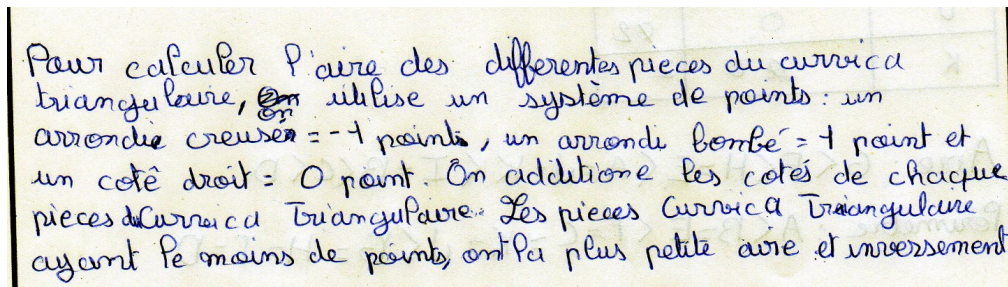 Pour calculer l'aire des differentes pieces du curvica
triangulaire, on utilise un système de points : un
arrondie creusé = -1 points, un arrondi bombé = 1 point et
un cotê droit = 0 point. On additione les cotés de chaque
pieces du Curvica Triangulaire. Les pieces Curvica Triangulaire
ayant le moins de points, ont la plus petite aire et inversement